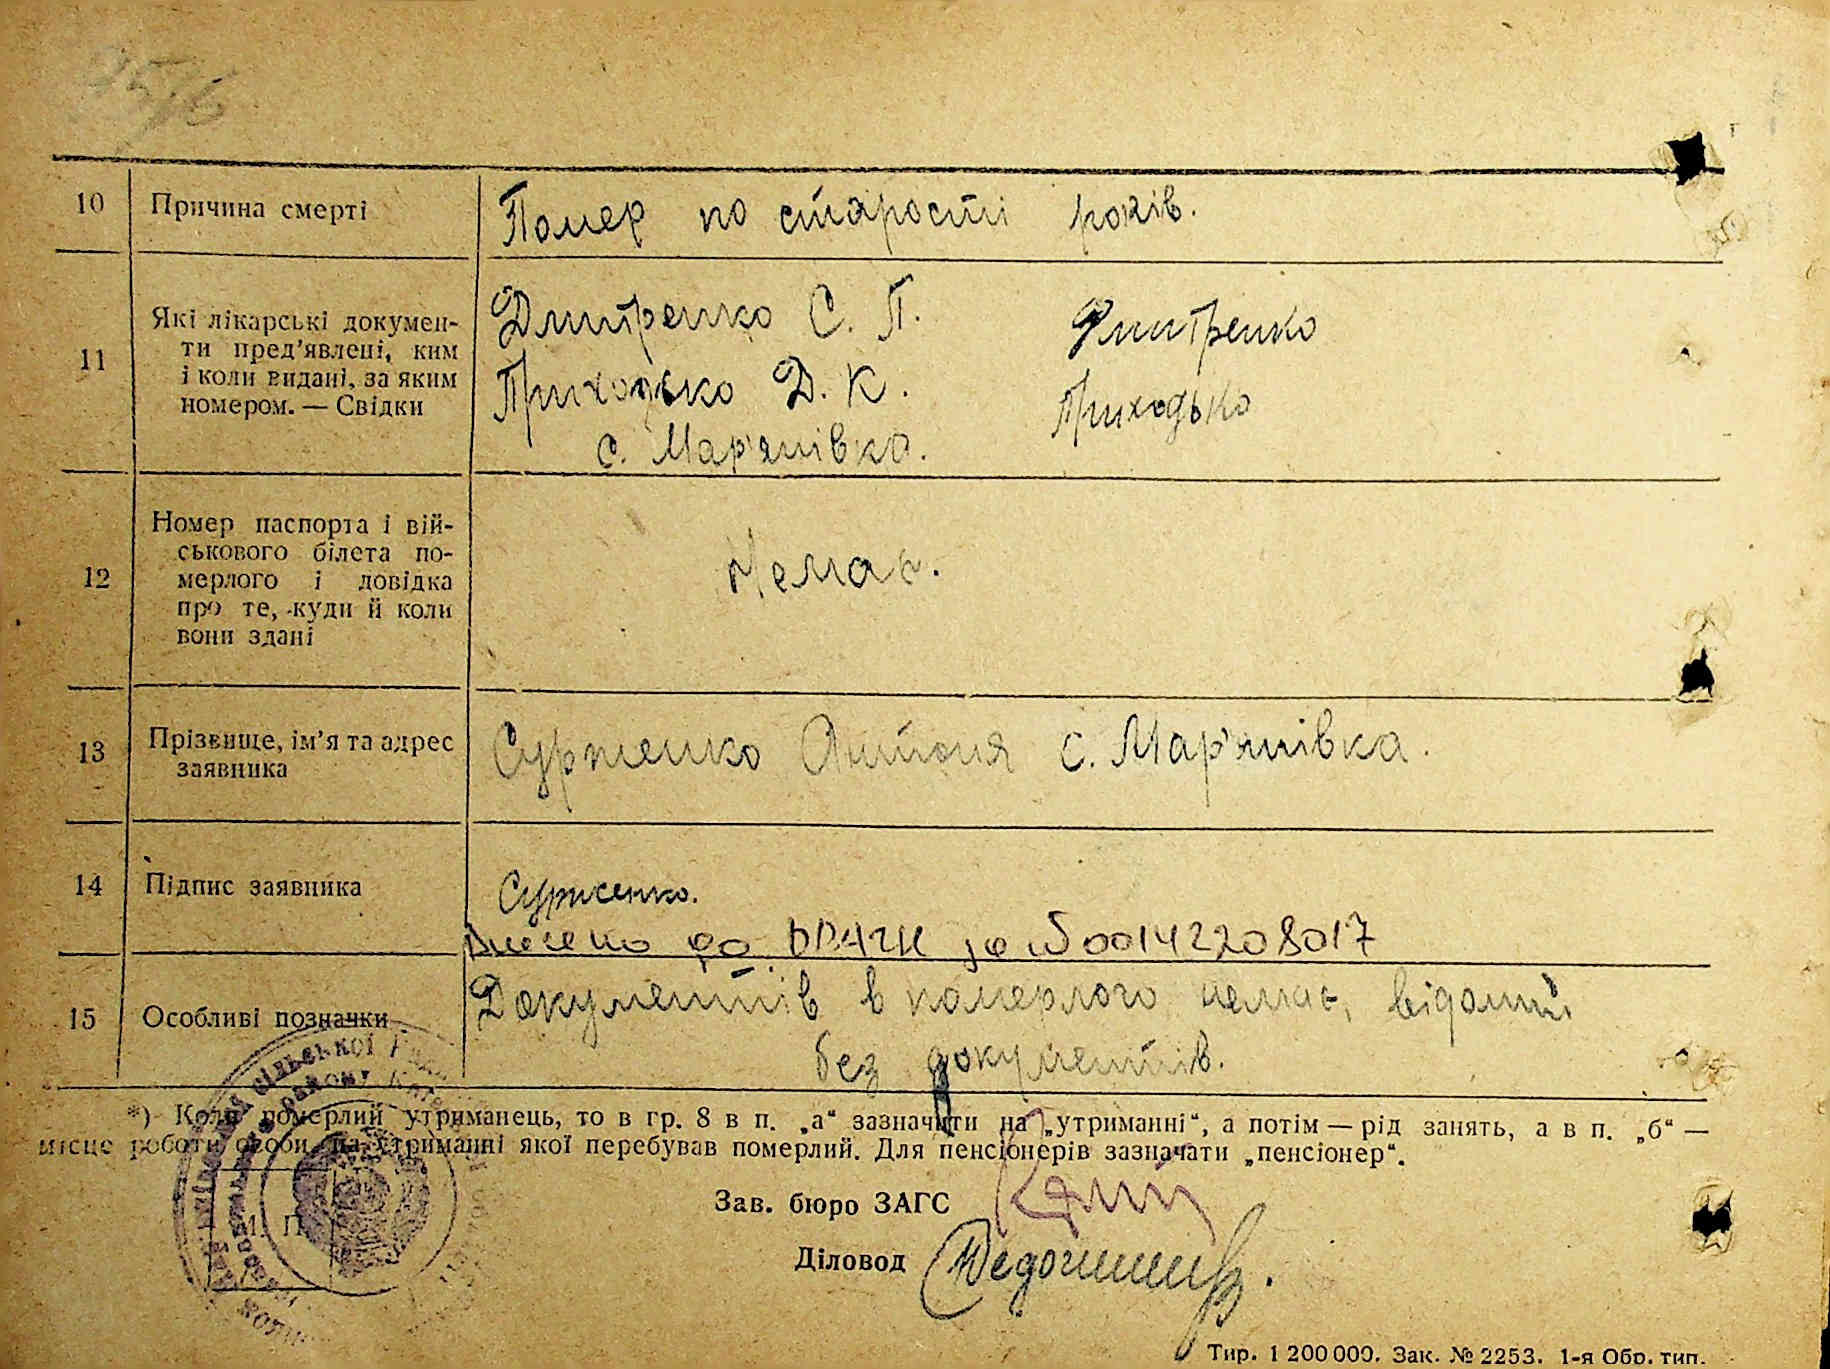 10
Причина смерті
Помер по старості років.
11
Які лікарські докумен-
ти пред’явлені, ким
і коли видані, за яким
номером. — Свідки
Дмитренко С. П. Дмитренко
Приходько Д. К. Приходько
с. Мар'янівка.
12
Номер паспорта і вій-
ськового білета по-
мерлого і довідка
про те, куди й коли
вони здані
Немає.
13
Прізвище, ім’я та адрес
заявника
Сурженко Антонія с. Мар'янівка.
14
Підпис заявника
Сурженко.
Внесено до ДРАЦС за № 00142208017
15
Особливі позначки
Документів в померлого немає, відомий
без документів.
*) Коли померлий утриманець, то в гр. 8 в п. „а“ зазначити на „утриманні“, а потім — рід занять, а в п. „б“ —
місце роботи особи, на утриманні якої перебував померлий. Для пенсіонерів зазначати „пенсіонер“.
М. П.
Зав. бюро ЗАГС
Діловод
Тир. 1 200 000. Зак. № 2253. 1-я Обр. тип.